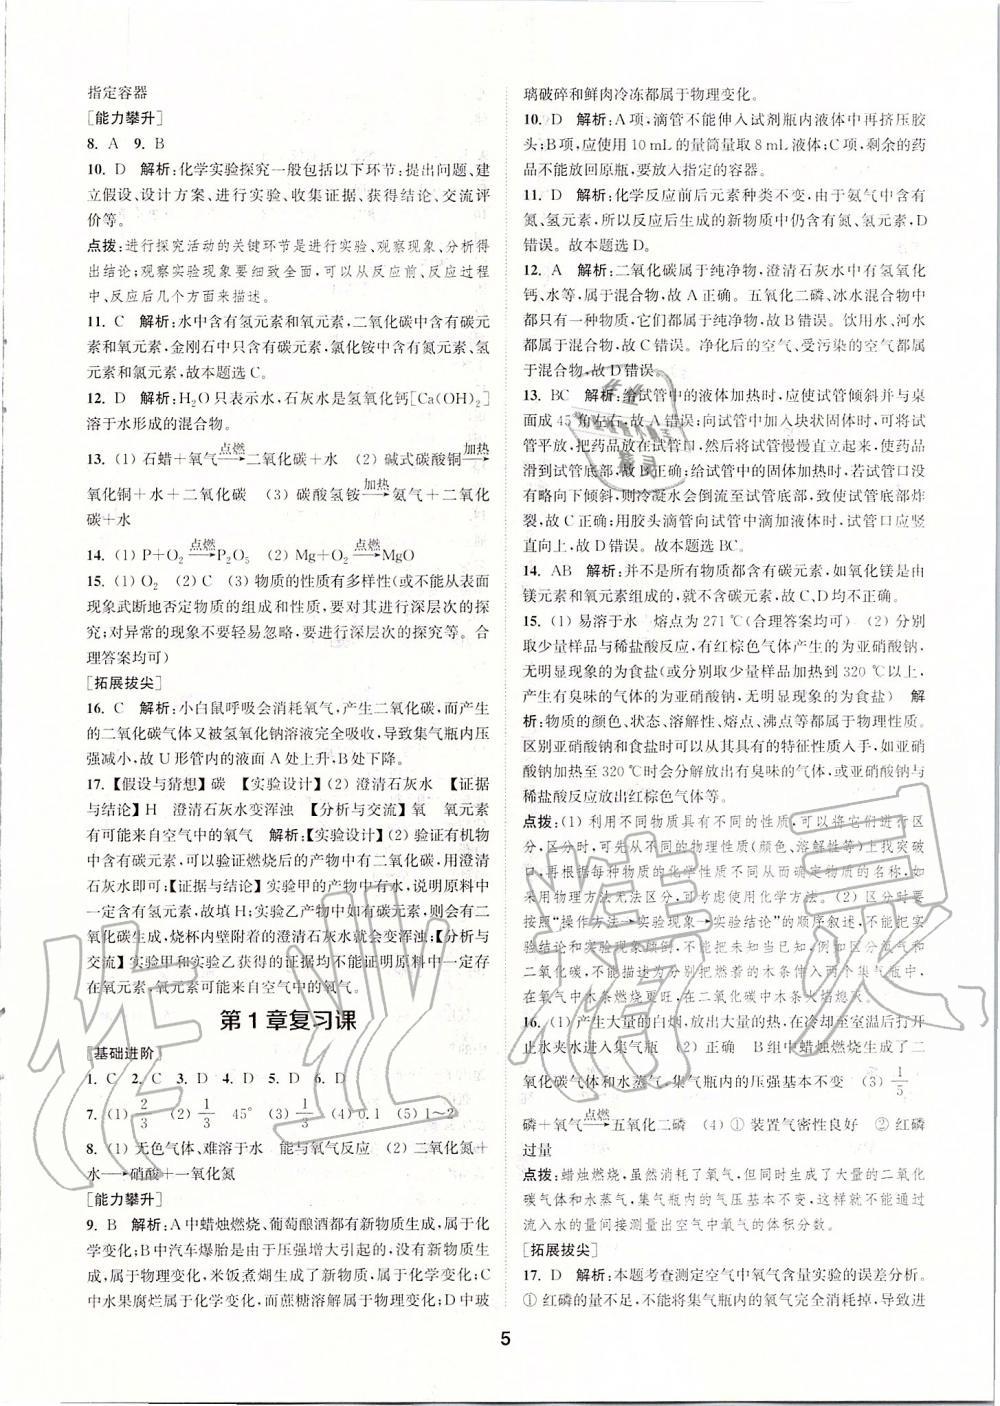 指定容器
[能力攀升]
8. A  9. B
10. D  解析:化学实验探究一般包括以下环节:提出问题、建
立假设、设计方案、进行实验、收集证据、获得结论、交流评
价等。
点拨:进行探究活动的关键环节是进行实验、观察现象、分析得
出结论;观察实验现象要细致全面,可以从反应前、反应过程
中、反应后几个方面来描述。
11. C  解析:水中含有氢元素和氧元素,二氧化碳中含有碳元
素和氧元素,金刚石中只含有碳元素,氯化铵中含有氮元素、氢
元素和氯元素,故本题选C。
12. D  解析:H₂O只表示水,石灰水是氢氧化钙[Ca(OH)₂]
溶于水形成的混合物。
13. (1) 石蜡+氧气 点燃→ 二氧化碳+水  (2) 碱式碳酸铜 加热→
氧化铜+水+二氧化碳  (3) 碳酸氢铵 加热→ 氨气+二氧化
碳+水
14. (1) P+O₂ 点燃→ P₂O₅  (2) Mg+O₂ 点燃→ MgO
15. (1) O₂  (2) C  (3) 物质的性质有多样性(或不能从表面
现象武断地否定物质的组成和性质,要对其进行深层次的探
究;对异常的现象不要轻易忽略,要进行深层次的探究等。合
理答案均可)
[拓展拔尖]
16. C  解析:小白鼠呼吸会消耗氧气,产生二氧化碳,而产生
的二氧化碳气体又被氢氧化钠溶液完全吸收,导致集气瓶内压
强减小,故U形管内的液面A处上升,B处下降。
17.【假设与猜想】碳 【实验设计】(2) 澄清石灰水 【证据
与结论】H  澄清石灰水变浑浊 【分析与交流】氧  氧元素
有可能来自空气中的氧气  解析:【实验设计】(2) 验证有机物
中含有碳元素,可以验证燃烧后的产物中有二氧化碳,用澄清
石灰水即可;【证据与结论】实验甲的产物中有水,说明原料中
一定含有氢元素,故填H;实验乙产物中如有碳元素,则会有二
氧化碳生成,烧杯内壁附着的澄清石灰水就会变浑浊;【分析与
交流】实验甲和实验乙获得的证据均不能证明原料中一定存
在氧元素,氧元素可能来自空气中的氧气。
第1章复习课
[基础进阶]
1. C  2. C  3. D  4. D  5. D  6. D
7. (1) 2/3  (2) 1/3  45°  (3) 1/3  (4) 0.1  (5) 1~2
8. (1) 无色气体、难溶于水  能与氧气反应  (2) 二氧化氮+
水→硝酸+一氧化氮
[能力攀升]
9. B  解析:A中蜡烛燃烧、葡萄酿酒都有新物质生成,属于化
学变化;B中汽车爆胎是由于压强增大引起的,没有新物质生
成,属于物理变化,米饭煮煳生成了新物质,属于化学变化;C
中水果腐烂属于化学变化,而蔗糖溶解属于物理变化;D中玻
璃破碎和鲜肉冷冻都属于物理变化。
10. D  解析:A项,滴管不能伸入试剂瓶内液体中再挤压胶
头;B项,应使用10 mL的量筒量取8 mL液体;C项,剩余的药
品不能放回原瓶,要放入指定的容器。
11. D  解析:化学反应前后元素种类不变,由于氨气中含有
氮、氢元素,所以反应后生成的新物质中仍含有氮、氢元素,D
错误。故本题选D。
12. A  解析:二氧化碳属于纯净物,澄清石灰水中有氢氧化
钙、水等,属于混合物,故A正确。五氧化二磷、冰水混合物中
都只有一种物质,它们都属于纯净物,故B错误。饮用水、河水
都属于混合物,故C错误。净化后的空气、受污染的空气都属
于混合物,故D错误。
13. BC  解析:给试管中的液体加热时,应使试管倾斜并与桌
面成45°角左右,故A错误;向试管中加入块状固体时,可将试
管平放,把药品放在试管口,然后将试管慢慢直立起来,使药品
滑到试管底部,故B正确;给试管中的固体加热时,若试管口没
有略向下倾斜,则冷凝水会倒流至试管底部,致使试管底部炸
裂,故C正确;用胶头滴管向试管中滴加液体时,试管口应竖
直向上,故D错误。故本题选BC。
14. AB  解析:并不是所有物质都含有碳元素,如氧化镁是由
镁元素和氧元素组成的,就不含碳元素,故C、D均不正确。
15. (1) 易溶于水  熔点为271℃(合理答案均可)  (2) 分别
取少量样品与稀盐酸反应,有红棕色气体产生的为亚硝酸钠,
无明显现象的为食盐(或分别取少量样品加热到320 ℃以上,
产生有臭味的气体的为亚硝酸钠,无明显现象的为食盐)  解
析:物质的颜色、状态、溶解性、熔点、沸点等都属于物理性质。
区别亚硝酸钠和食盐时可以从其具有的特征性质入手,如亚硝
酸钠加热至320℃时会分解放出有臭味的气体,亚硝酸钠与
稀盐酸反应放出红棕色气体等。
点拨:(1) 利用不同物质具有不同的性质,可以将它们进行区
分,区分时,可先从不同的物理性质(颜色、溶解性等)上找突破
口,再根据每种物质的化学性质差异从而确定物质的名称,如
采用物理方法无法区分,可考虑使用化学方法。(2) 区分时要
按照“操作方法→实验现象→实验结论”的顺序叙述,不能把实
验结论和实验现象颠倒,不能把未知当已知,例如区分氧气和
二氧化碳,不能直接描述为分别把燃着的木条伸入两个集气瓶中,
在氧气中木条燃烧更旺,在二氧化碳中木条火焰熄灭。
16. (1) 产生大量的白烟,放出大量的热,在冷却至室温后打开
止水夹水进入集气瓶  (2) 正确  B组中蜡烛燃烧生成了二
氧化碳气体和水蒸气,集气瓶内的压强基本不变  (3) 1/5
磷+氧气 点燃→ 五氧化二磷  (4) ① 装置气密性良好  ② 红磷
过量
点拨:蜡烛燃烧,虽然消耗了氧气,但同时生成了大量的二氧化
碳气体和水蒸气,集气瓶内的气压基本不变,这样就不能通过
流入水的量间接测量出空气中氧气的体积分数。
[拓展拔尖]
17. D  解析:本题考查测定空气中氧气含量实验的误差分析。
① 红磷的量不足,不能将集气瓶内的氧气完全消耗掉,导致进
5
作业精灵